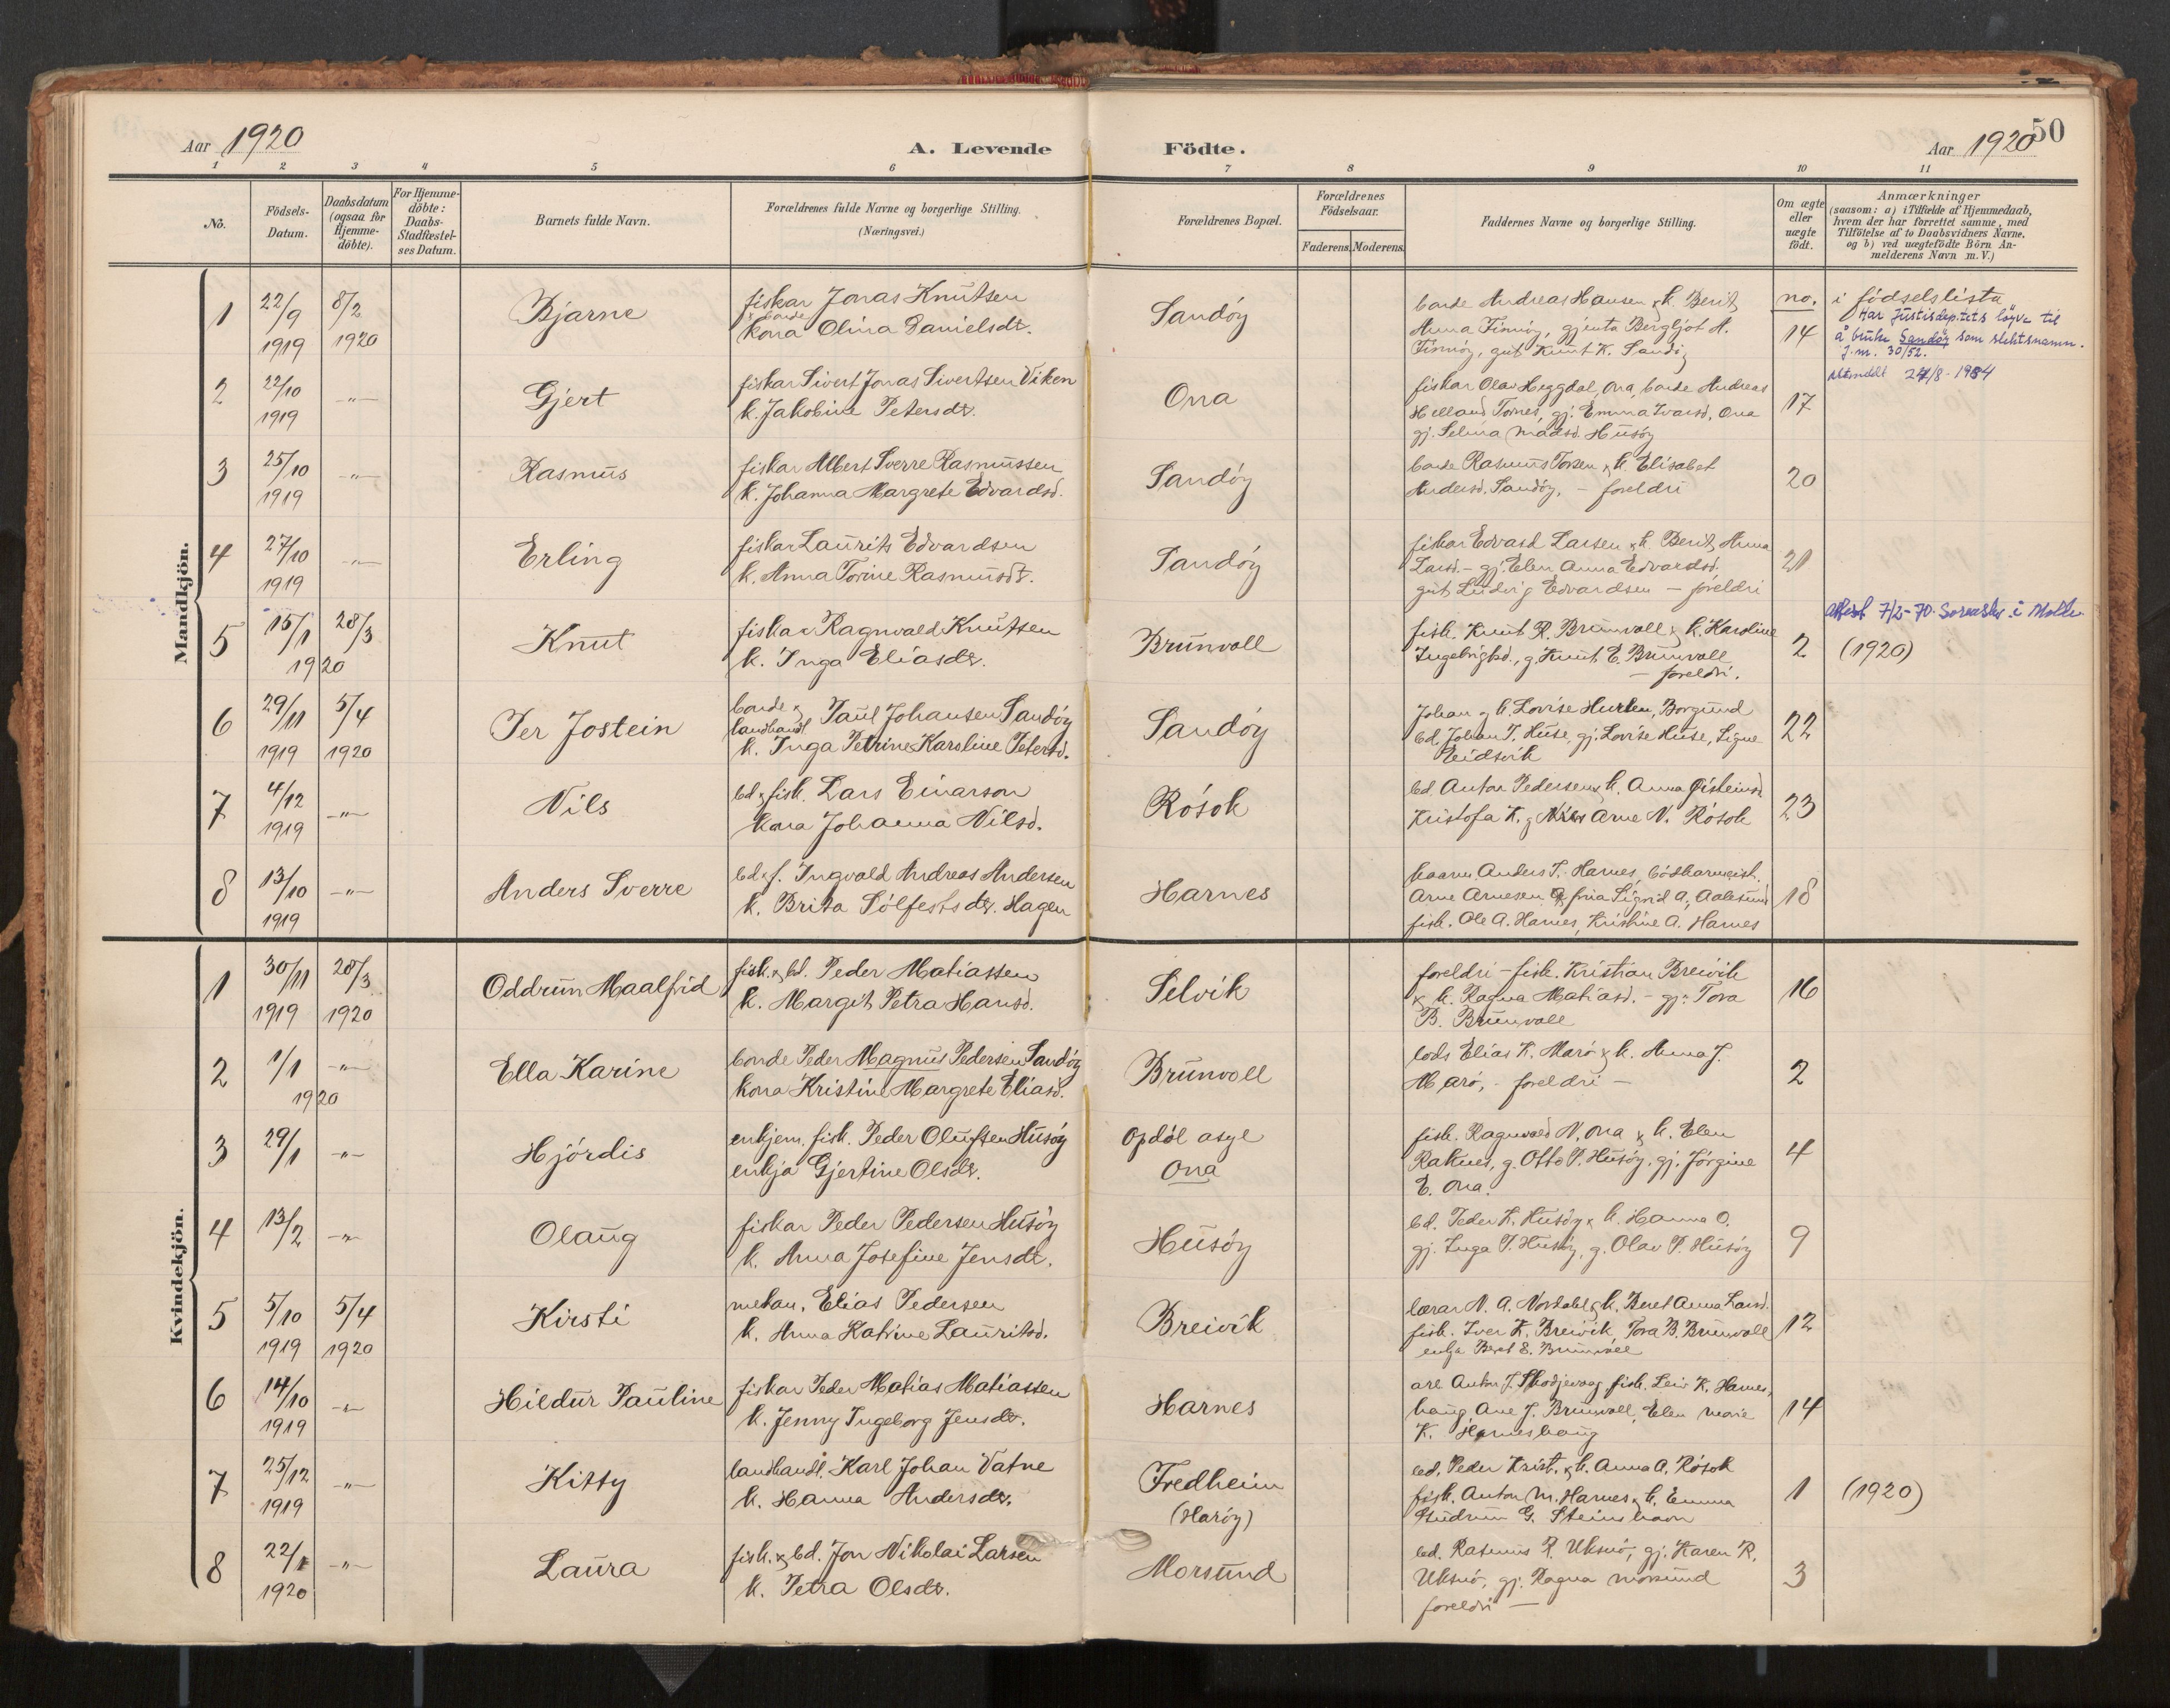 Aar 1920
A. Levende Födte.
Aar 1920
50
1 2 3 4 5 6 7 8 9 10 11
No.
Födsels-Datum.
Daabsdatum (ogsaa for Hjemme-döbte).
For Hjemme-döbte: Daabs-Stadfæstel-ses Datum.
Barnets fulde Navn.
Forældrenes fulde Navne og borgerlige Stilling.
(Næringsvei.)
Forældrenes Bopæl.
Forældrenes Födselsaar.
Faderens. Moderens.
Faddernes Navne og borgerlige Stilling.
Om ægte eller uægte födt.
Anmærkninger
(saasom: a) i Tilfælde af Hjemmedaab,
hvem der har forrettet samme, med
Tilföielse af to Daabsvidners Navne,
og b) ved uægtefödte Börn An-
melderens Navn m.V.)
Mandkjön.
1 22/9 1919 8/2 1920 Bjarne
fiskar Jonas Knutsen
& bonde
kona Olina Danielsdr.
Sandöy
bonde Andreas Hansen & k. Berit
Anna Finnöy, gjenta Bergljot A.
Finnöy, gut Knut K. Sandöy
no. 14
i födselslista
Har Justisdep.tets löyve til
å bruke Sandöy som slektsnamn.
J.nr. 30/52.
27/8-1954
2 22/10 1919 -"- Gjert
fiskar Sivert Jonas Sivertsen Viken
k. Jakobine Petersdr.
Ona
fiskar Olav Heggdal, Ona, bonde Andreas
Helland Tornes, gj. Emma Ivarsd. Ona
gj. Selma Madsd. Husöy
17
3 25/10 1919 -"- Rasmus
fiskar Albert Sverre Rasmussen
k. Johanna Margrete Edvardsd.
Sandöy
bonde Rasmus & k. Elisabet
Andersd. Sandöy, - foreldri
20
4 27/10 1919 -"- Erling
fiskar Laurits Edvardsen
k. Anna Torine Rasmusdr.
Sandöy
fiskar Edvard Larsen & k. Berit Anna
Larsd. - gj. Elen Anna Edvardsd.
gut Ludvig Edvardsen - foreldri
21
5 15/1 28/3 1920 Knut
fiskar Ragnvald Knutsen
k. Inga Eliasdr.
Brunvoll
fisk. Knut R. Brunvoll & k. Karoline
Ingebrigtsd., g. Knut E. Brunvoll
- foreldri.
2
Attest 7/2-70. Sorenskr. i Molde
(1920)
6 29/11 1919 5/4 1920 Per Jostein
bonde &
landhandl. Paul Johansen Sandöy
k. Inga Petrine Karoline Petersd.
Sandöy
Johan & k. Lovise Hurlen, Borgund
bd. Johan P. Huse, gj. Lovise Huse, Signe
Eidsvik
22
7 4/12 1919 -"- Nils
bd. & fisk. Lars Einarson
kona Johanna Nilsd.
Rösok
bd. Anton Pedersen & k. Anna Gisteinsd
Kristofa K. g Nils Arne N. Rösok
23
8 13/10 1919 -"- Anders Sverre
bd. & f. Ingvald Andreas Andersen
k. Brita Sölfestsdr. Hagen
Harnes
Anders T. Harnes, bödkarmeist.
Arne Arnesen & frua Sigrid A., Aalesund
fisk. Ole A. Harnes, Kristine A. Harnes
18
Kvindekjön.
1 30/11 1919 28/3 1920 Oddrun Maalfrid
fisk. & bd. Peder Matiassen
k. Margit Petra Hansd.
Selvik
foreldri - fisk. Kristian Breivik
& k. Ragna Matiasd. - gj. Tora
B. Brunvoll
16
2 1/1 -"- 1920 Ella Karine
bonde Peder Magnus Pedersen Sandöy
kona Kristine Margrete Eliasd.
Brunvoll
lods Elias K. Marö & k. Anna J.
Marö, - foreldri -
2
3 29/1 -"- Hjördis
enkjem. fisk. Peder Olufsen Husöy
enkja Gjertine Olsdr.
Opdöl asyl
Ona
fisk. Ragnvald N. Ona & k. Elen
Raknes, g. Otto P. Husöy, gj. Jörgine
E. Ona.
4
4 13/2 -"- Olaug
fiskar Peder Pedersen Husöy
k. Anna Josefine Jensdr.
Husöy
bd. Peder K. Husöy & k. Hanna O.
gj. Inga P. Husöy, g. Olav P. Husöy
9
5 5/10 1919 5/4 1920 Kirsti
mekan. Elias Pedersen
k. Anna Katrine Lauritsd.
Breivik
lærar N. A. Nordahl & k. Beret Anna Larsd.
fisk. Iver K. Breivik, Tora B. Brunvoll
enkja Beret E. Brunvoll
12
6 14/10 1919 -"- Hildur Pauline
fiskar Peder Matias Matiassen
k. Jenny Ingeborg Jensdr.
Harnes
arb. Anton J. Skodjevaag, fisk. Leiv K. Harnes-
haug, Ane J. Brunvoll, Elen Marie
K. Harneshaug
14
7 25/12 1919 -"- Kitty
landhandl. Karl Johan Vatne
k. Hanna Andersdr.
Fredheim
(Haröy)
bd. Peder Krist. & k. Anna A. Rösok
fisk. Anton M. Harnes & k. Emma
Gudrun G. Steinshavn
1
(1920)
8 22/1 1920 -"- Laura
fisk. & bd. Jon Nikolai Larsen
k. Petra Olsdr.
Morsund
bd. Rasmus R. Uksnö, gj. Karen R.
Uksnö, gj. Ragna Morsund
foreldri -
3